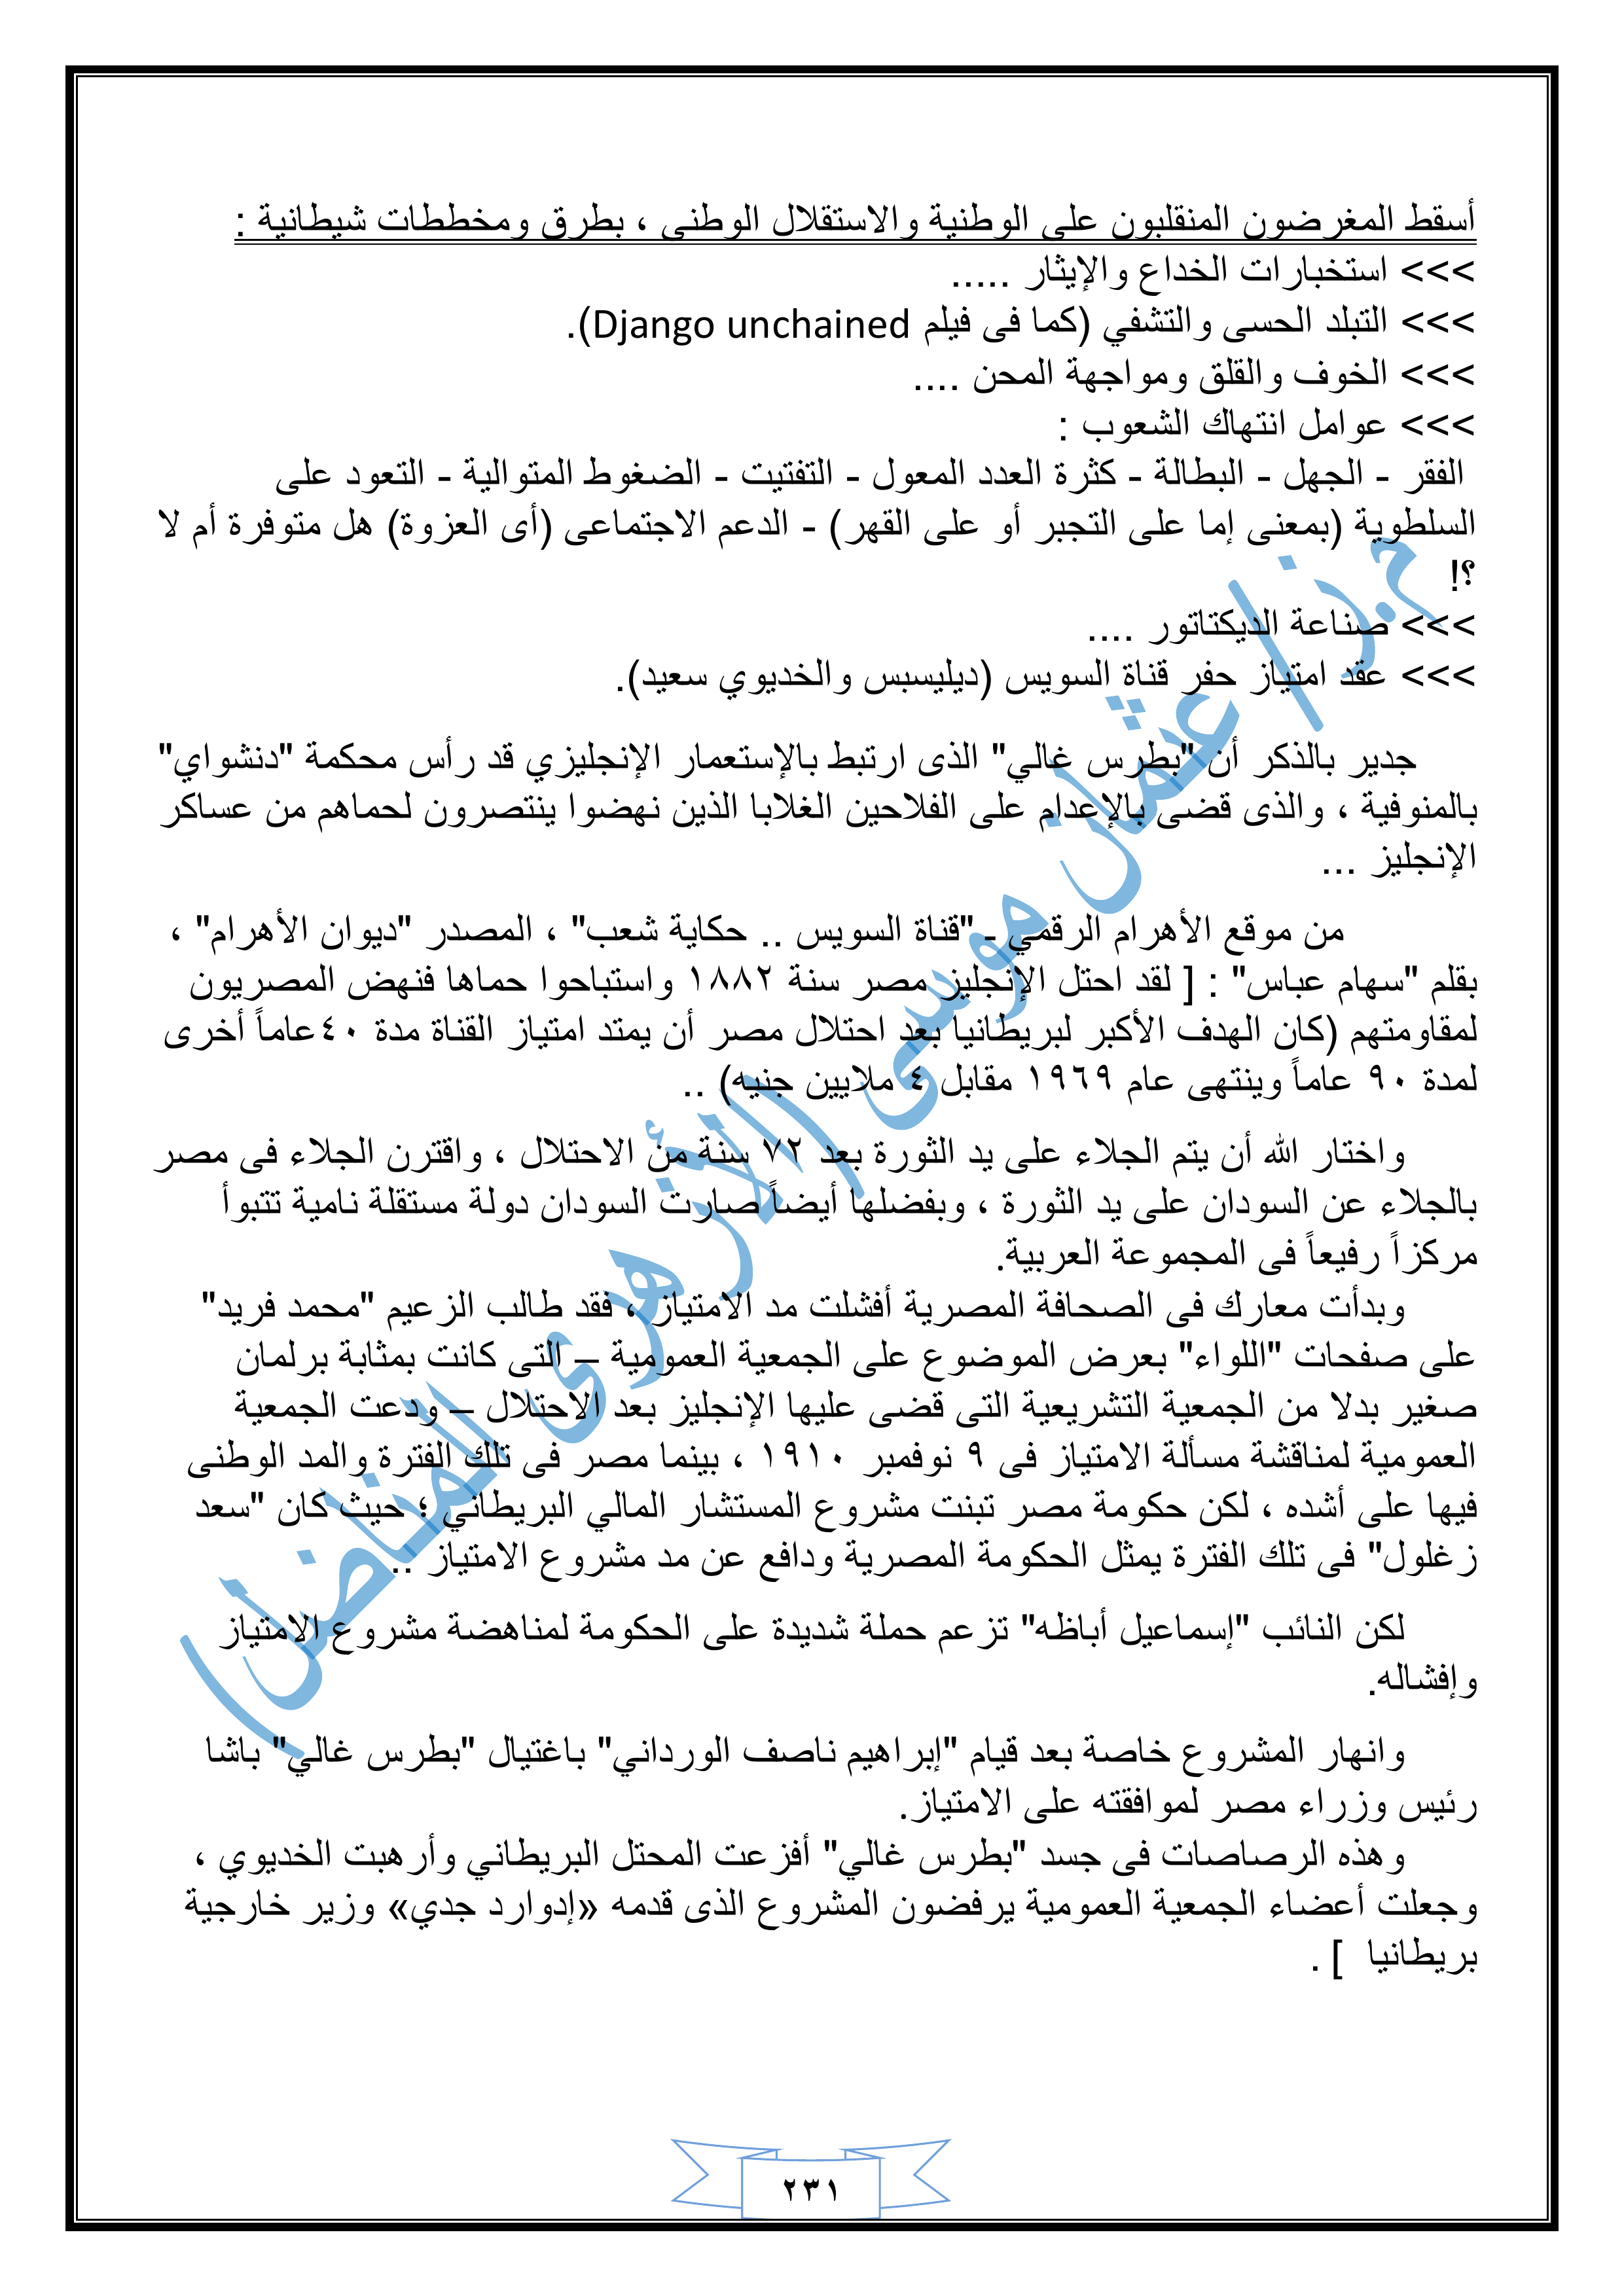 أسقط المغرضون المنقلبون على الوطنية والاستقلال الوطنى ، بطرق ومخططات شيطانية :
>>> استخبارات الخداع والإيثار .....
>>> التبلد الحسى والتشفي (كما فى فيلم Django unchained).
>>> الخوف والقلق ومواجهة المحن ....
>>> عوامل انتهاك الشعوب :
الفقر - الجهل - البطالة - كثرة العدد المعول - التفتيت - الضغوط المتوالية - التعود على
السلطوية (بمعنى إما على التجبر أو على القهر) - الدعم الاجتماعى (أى العزوة) هل متوفرة أم لا
؟!
>>> صناعة الديكتاتور ....
>>> عقد امتياز حفر قناة السويس (ديليسبس والخديوي سعيد).
جدير بالذكر أن "بطرس غالي" الذى ارتبط بالإستعمار الإنجليزي قد رأس محكمة "دنشواي"
بالمنوفية ، والذى قضى بالإعدام على الفلاحين الغلابا الذين نهضوا ينتصرون لحماهم من عساكر
الإنجليز ...
من موقع الأهرام الرقمي - "قناة السويس .. حكاية شعب" ، المصدر "ديوان الأهرام" ،
بقلم "سهام عباس" : [ لقد احتل الإنجليز مصر سنة ١٨٨٢ واستباحوا حماها فنهض المصريون
لمقاومتهم (كان الهدف الأكبر لبريطانيا بعد احتلال مصر أن يمتد امتياز القناة مدة ٤٠عاماً أخرى
لمدة ٩٠ عاماً وينتهى عام ١٩٦٩ مقابل ٤ ملايين جنيه) ..
واختار الله أن يتم الجلاء على يد الثورة بعد ٧٢ سنة من الاحتلال ، واقترن الجلاء فى مصر
بالجلاء عن السودان على يد الثورة ، وبفضلها أيضاً صارت السودان دولة مستقلة نامية تتبوأ
مركزاً رفيعاً فى المجموعة العربية.
وبدأت معارك فى الصحافة المصرية أفشلت مد الامتياز ، فقد طالب الزعيم "محمد فريد"
على صفحات "اللواء" بعرض الموضوع على الجمعية العمومية – التى كانت بمثابة برلمان
صغير بدلا من الجمعية التشريعية التى قضى عليها الإنجليز بعد الاحتلال – ودعت الجمعية
العمومية لمناقشة مسألة الامتياز فى ٩ نوفمبر ١٩١٠ ، بينما مصر فى تلك الفترة والمد الوطنى
فيها على أشده ، لكن حكومة مصر تبنت مشروع المستشار المالي البريطاني ؛ حيث كان "سعد
زغلول" فى تلك الفترة يمثل الحكومة المصرية ودافع عن مد مشروع الامتياز ..
لكن النائب "إسماعيل أباظه" تزعم حملة شديدة على الحكومة لمناهضة مشروع الامتياز
وإفشاله.
وانهار المشروع خاصة بعد قيام "إبراهيم ناصف الورداني" باغتيال "بطرس غالي" باشا
رئيس وزراء مصر لموافقته على الامتياز.
وهذه الرصاصات فى جسد "بطرس غالي" أفزعت المحتل البريطاني وأرهبت الخديوي ،
وجعلت أعضاء الجمعية العمومية يرفضون المشروع الذى قدمه «إدوارد جدي» وزير خارجية
بريطانيا ] .
م.ز/ عثمان موسى (الأزهرى المناضل)
٢٣١